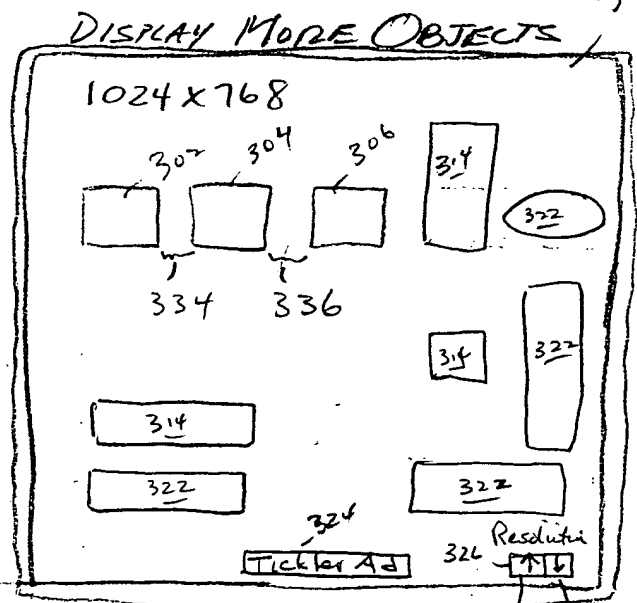 DISPLAY MORE OBJECTS
1024 x 768
302 304 306 314
322
334 336
314 322
314
322 322
324
Tickler Ad 326 Resolution
↑ ↓